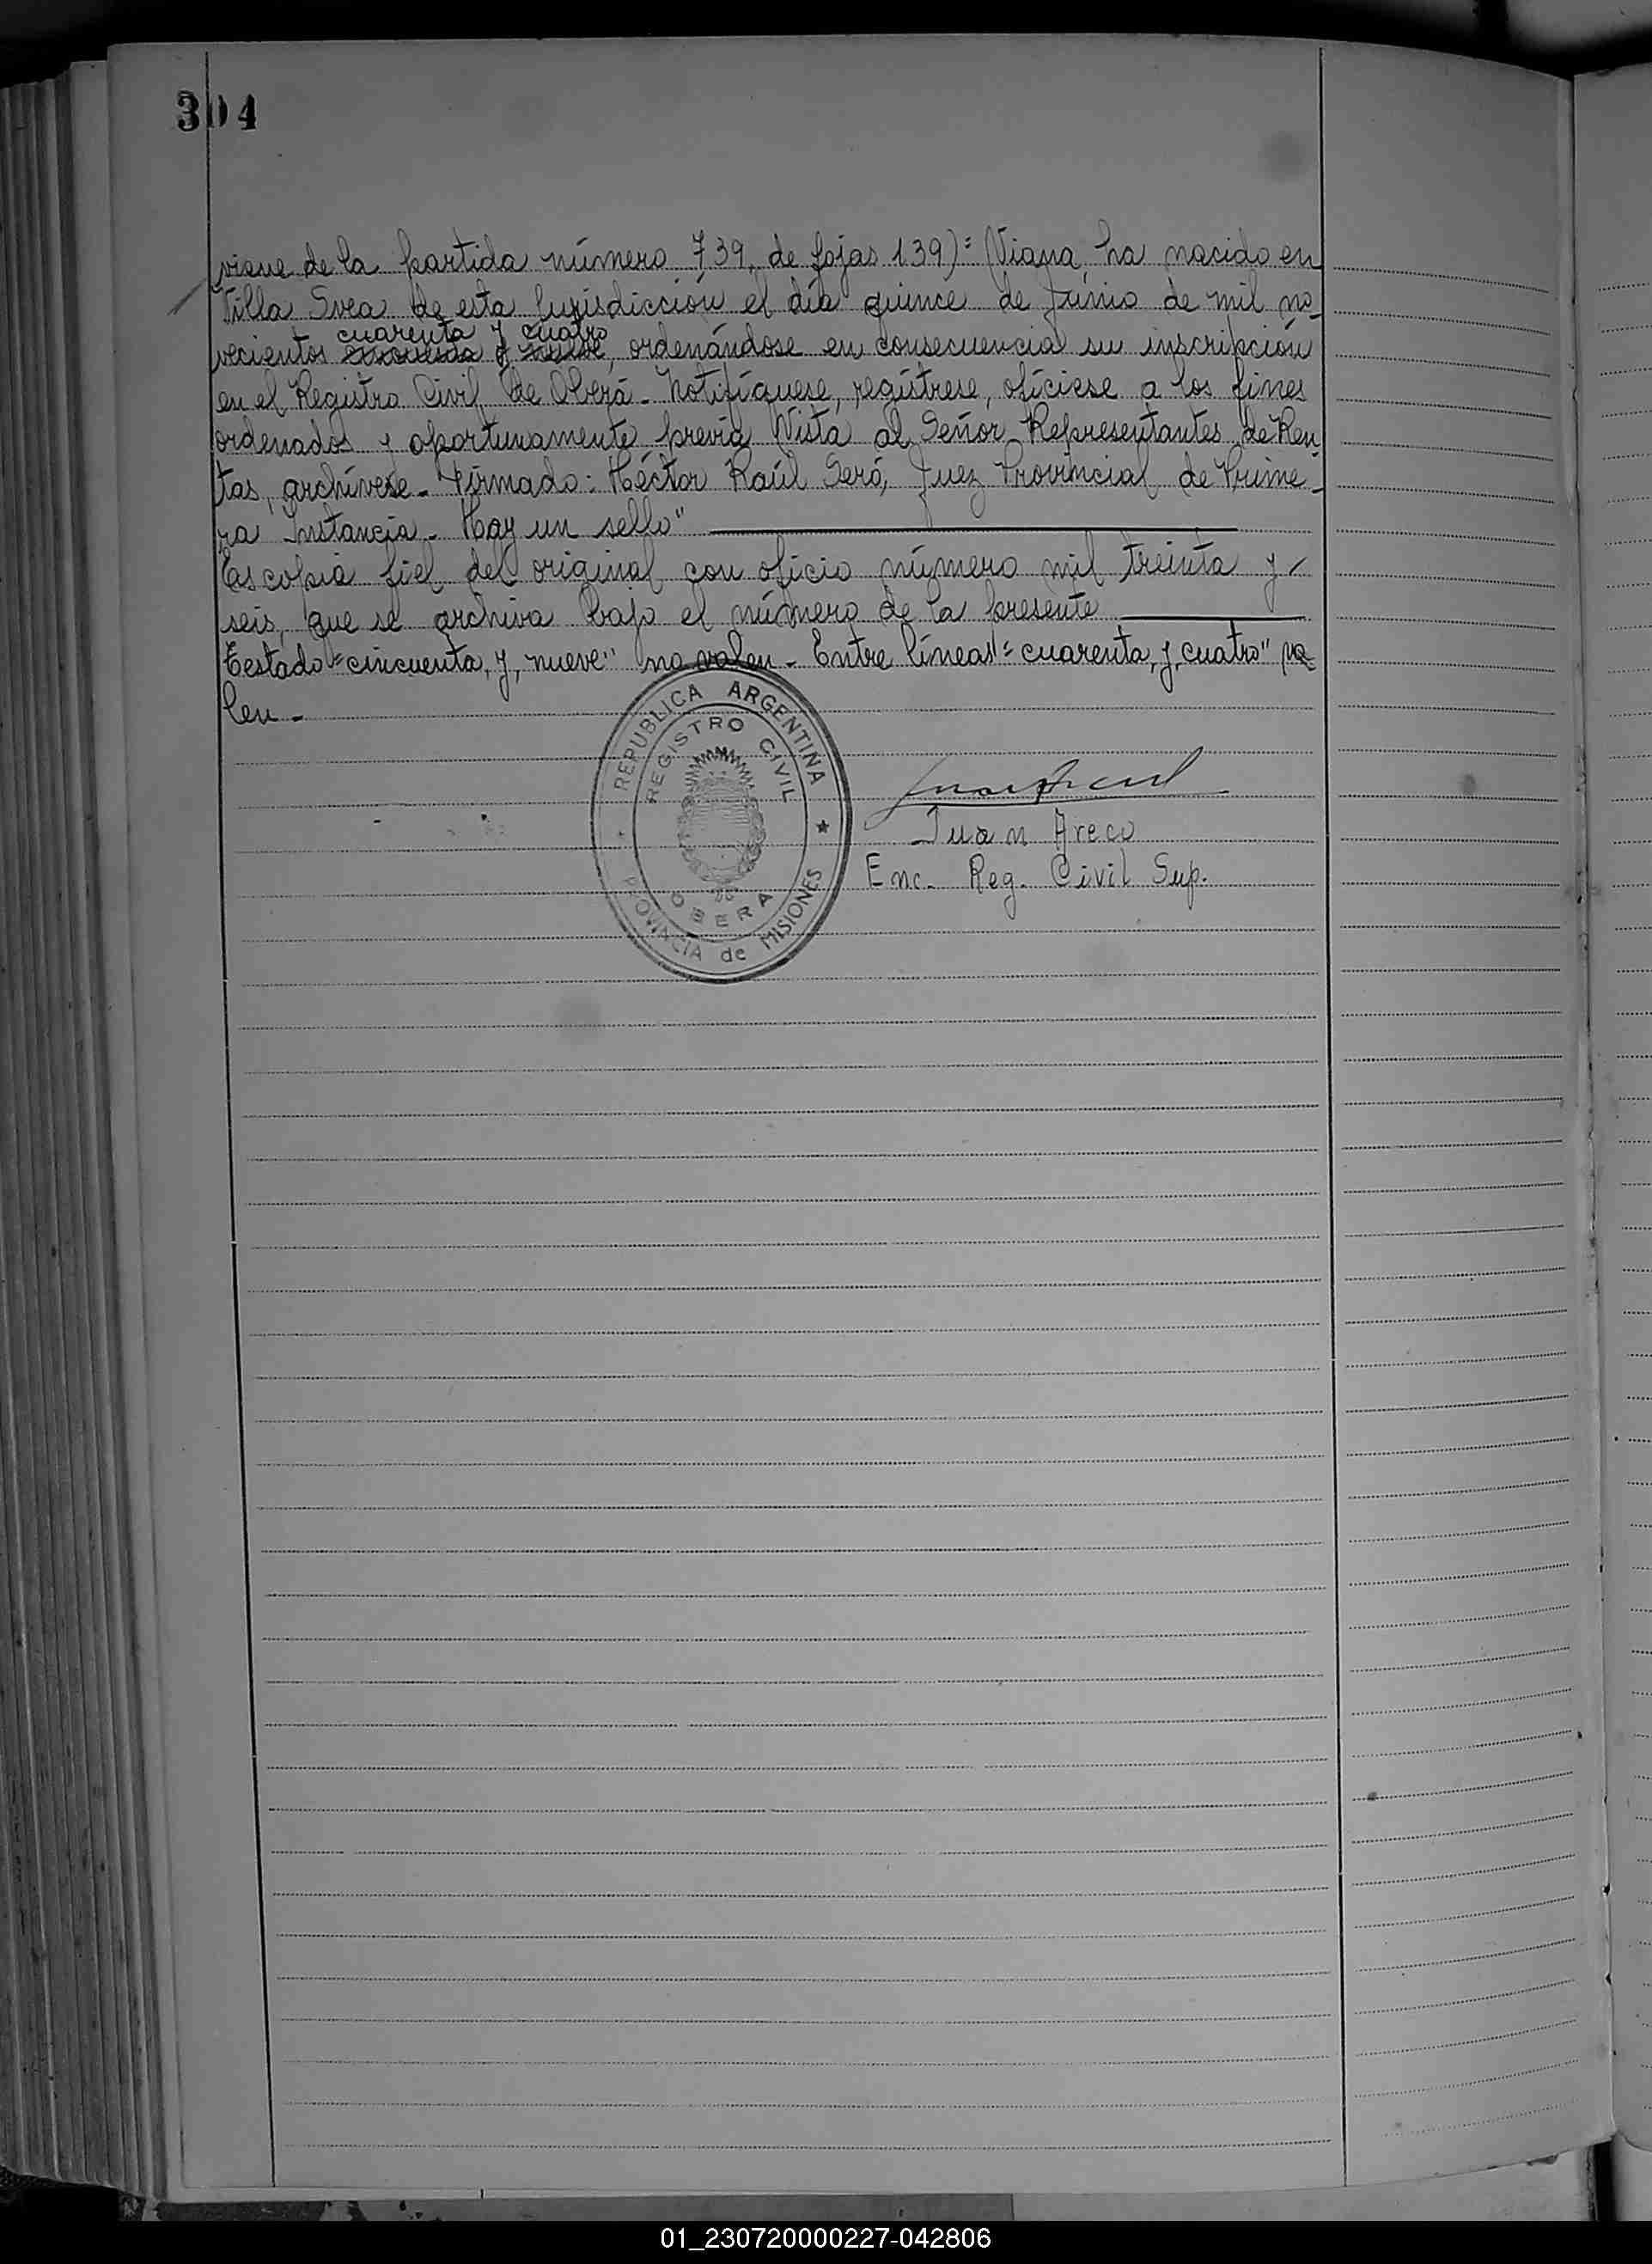 304
viene de la partida número 739, de fojas 139)= Viana, ha nacido en
Villa Svea de esta Jurisdicción el día quince de Junio de mil no_
cuarenta y cuatro
vecientos cincuenta y nueve, ordenándose en consecuencia su inscripción
en el Registro Civil de Oberá_ Notifíquese, regístrese, ofíciese a los fines
ordenados y oportunamente previa Vista al Señor Representantes de Ren_
tas, archívese_ Firmado: Héctor Raúl Seró, Juez Provincial de Prime_
ra Instancia_ Hay un sello"
Es copia fiel del original con oficio número mil treinta y
seis, que se archiva bajo el número de la presente
Testado="cincuenta, y, nueve" no valen_ Entre líneas"=cuarenta, y, cuatro" va
len_
REPUBLICA ARGENTINA
REGISTRO CIVIL
OBERA
PROVINCIA de MISIONES
Juan Areco
Enc. Reg. Civil Sup.
01_230720000227-042806